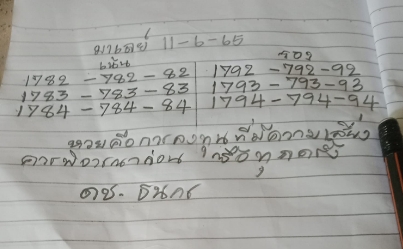 มาเลย์ 11-6-65
เน้น รอง
1782 - 782 - 82 1792 - 792 - 92
1783 - 783 - 83 1793 - 793 - 93
1784 - 784 - 84 1794 - 794 - 94
หวยคือการลงทุนที่มีความเสี่ยง
ควรพิจารณาก่อน
ดช. ธนกร